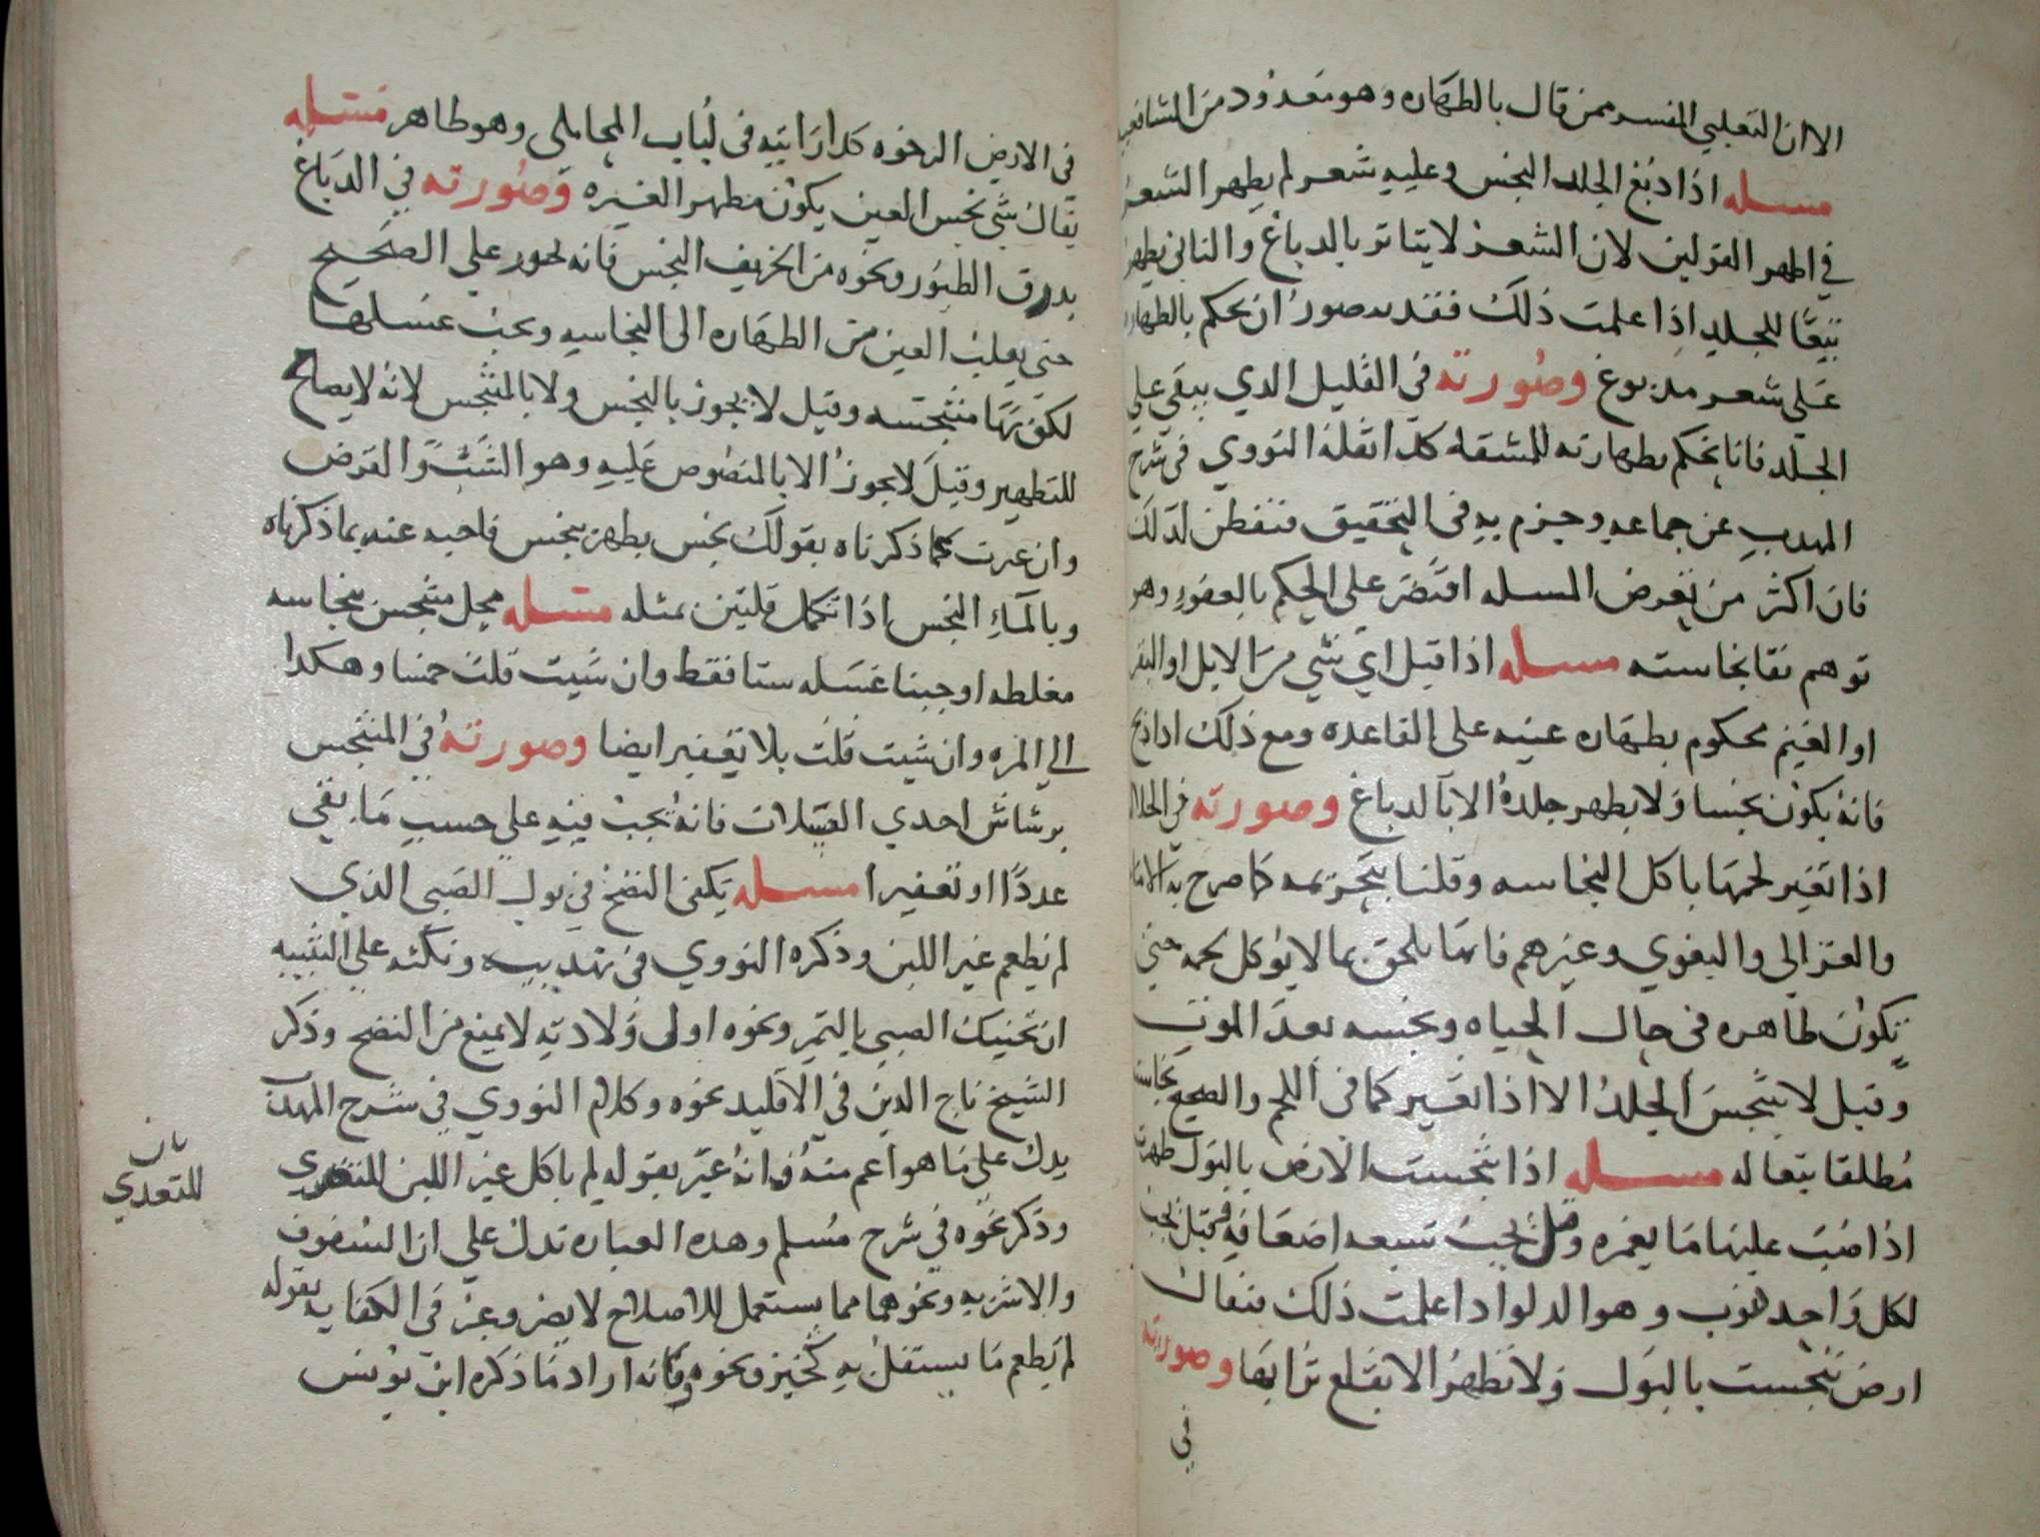 الا ان الثعلبي المفسر ممن قال بالطهاره وهو معدود من الشافعيه
مسله اذا دبغ الجلد النجس وعليه شعر لم يطهر الشعر
في اظهر القولين لان الشعر لا يتاثر بالدباغ والثاني يطهر
تبعا للجلد اذا علمت ذلك فقد يتصور ان يحكم بالطهاره
على شعر مدبوغ وصورته في القليل الذي يبقى على
الجلد فانا نحكم بطهارته للمشقه كذا نقله النووي في شرح
المهذب عن جماعه وجزم به في التحقيق فتفطن لذلك
فان اكثر من تعرض المسله اقتصر على الحكم بالعفو وهو
توهم بقا نجاسته مسله اذا قيل اي شي من الابل او البقر
او الغنم محكوم بطهاره عينه على القاعده ومع ذلك اذا ذبح
فانه يكون نجسا ولا يطهر جلده الا بالدباغ وصورته في الجلاله
اذا تغير لحمها باكل النجاسه وقلنا بتحريمه كما صرح به الامام
والغزالي والبغوي وغيرهم فانها يلحق بما لا يوكل لحمه حتى
يكون طاهره في حال الحياه ونجسه بعد الموت
وقيل لا ينجس الجلد الا اذا تغير كما في اللحم والصحيح نجاسته
مطلقا بتعا له مسله اذا تنجست الارض بالبول طهرت
اذا صب عليها ما يغمره وقيل يجب سبعه اضعافه فقيل يجب
لكل واحد ذنوب وهو الدلو اذا علمت ذلك فيقال
ارض تنجست بالبول ولا تطهر الا بقلع ترابها وصورته
في
في الارض الرخوه كذا رايته في لباب المحاملي وهو ظاهر مسله
يقال شي نجس العين يكون مطهرا لغيره وصورته في الدباغ
بذرق الطيور ونحوه من الحريف النجس فانه يجوز على الصحيح
حتى يعلب العين من الطهاره الى النجاسه ويجب غسلها
لكونها متنجسه وقيل لا يجوز بالنجس ولا بالمتنجس لانه لا يصلح
للتطهير وقيل لا يجوز الا بالمنصوص عليه وهو الشب والقرض
وان عبرت عما ذكرناه بقولك نجس يطهر بنجس فاجبه عنه بما ذكرناه
وبالماء النجس اذا تكمل قلتين بمثله مسله محل متنجس بنجاسه
مغلظه اوجبنا غسله ستا فقط وان شيت قلت خمسا وهكذا
الي المره وان شيت قلت بلا تعفير ايضا وصورته في المتنجس
برشاش احدي الغسلات فانه يجب فيه على حسب ما بقي
عددا او تعفيرا مسله يكفي النضح في بول الصبي الذي
لم يطعم غير اللبن وذكره النووي في تهذيبه ونكته على التنبيه
ان تحنيك الصبي بالتمر ونحوه اولى ولادته لا يمنع من النضح وذكر
الشيخ تاج الدين في الاقليد نحوه وكلام النووي في شرح المهذب
يدل على ما هو اعم منه فانه عبر بقوله لم ياكل غير اللبن للتغذي
وذكر نحوه في شرح مسلم وهذه العباره تدل على ان السفوف
والاشربه ونحوهما مما يستعمل للاصلاح لا يضر وعبر في الكفايه بقوله
لم يطعم ما يستقل به كخبز ونحوه وكانه اراد ما ذكره ابن يونس
بان
للتعدي